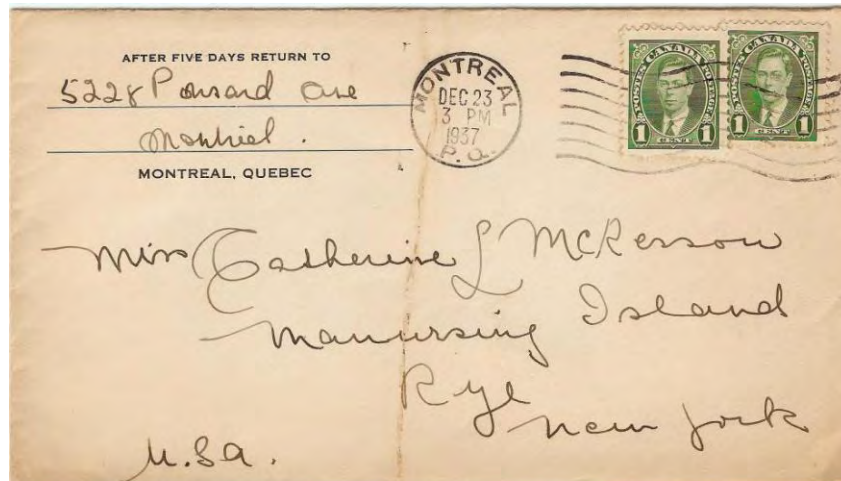 AFTER FIVE DAYS RETURN TO
5228 Ponsard Ave
Montreal.
MONTREAL, QUEBEC
MONTREAL
DEC 23
3 PM
1937
P.Q.
POSTES CANADA POSTAGE
1 CENT 1
POSTES CANADA POSTAGE
1 CENT 1
Miss Catherine L McKesson
Manursing Island
Rye
New York
U.S.A.